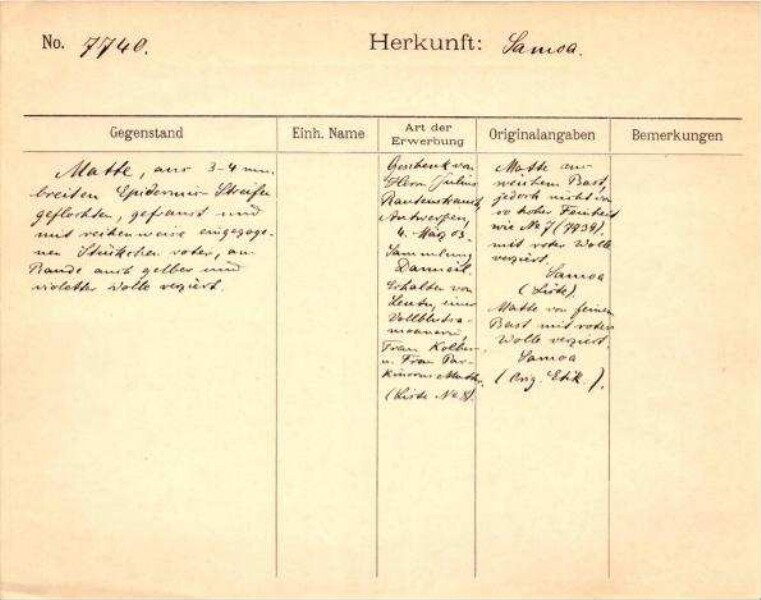 No. 7740.
Herkunft: Samoa.
Gegenstand
Einh. Name
Art der Erwerbung
Originalangaben
Bemerkungen
Matte, aus 3-4 mm.
breiten Epidermis-Streifen
geflochten, gefranst und
mit reihenweise eingezoge-
nen Stückchen roter, am
Rande auch gelber und
violetter Wolle verziert.
Geschenk von
Herrn Julius
Rautenstrauch,
Antwerpen,
4. März 03.
Sammlung
Damm
Erhalten von
einer
Vollblutsa-
moanerin,
Frau Kolbe-
u. Frau Par-
kinsons Mutter.
(Liste No 8).
Matte aus
weichem Bast,
jedoch nicht von
so hoher Feinheit
wie No 7 (7739).
mit roter Wolle
verziert.
Samoa
(Liste).
Matte von feinem
Bast mit roter
Wolle verziert.
Samoa
(Orig. Etik.).